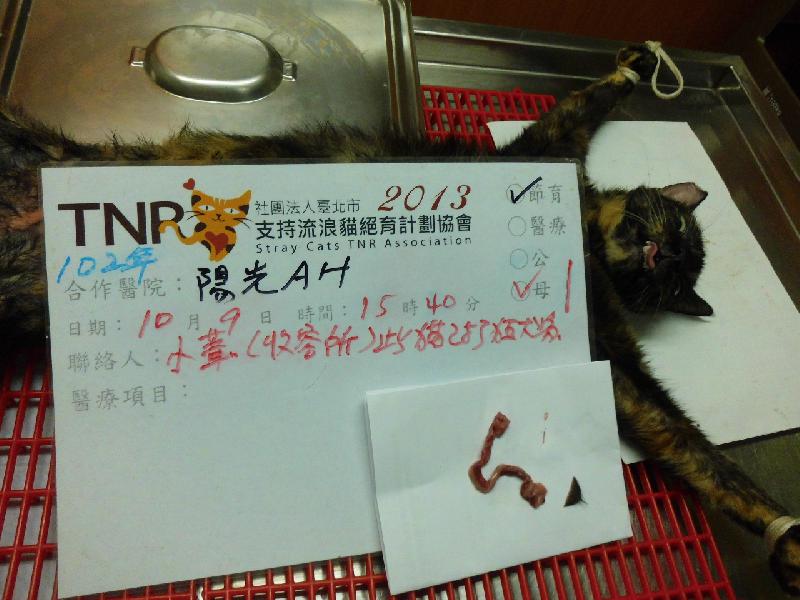 TNR 社團法人臺北市 2013
支持流浪貓絕育計劃協會
Stray Cats TNR Association
節育
醫療
公
母 1
102年
合作醫院：陽光AH
日期：10月9日 時間：15時40分
聯絡人：小葦(收容所)
醫療項目：